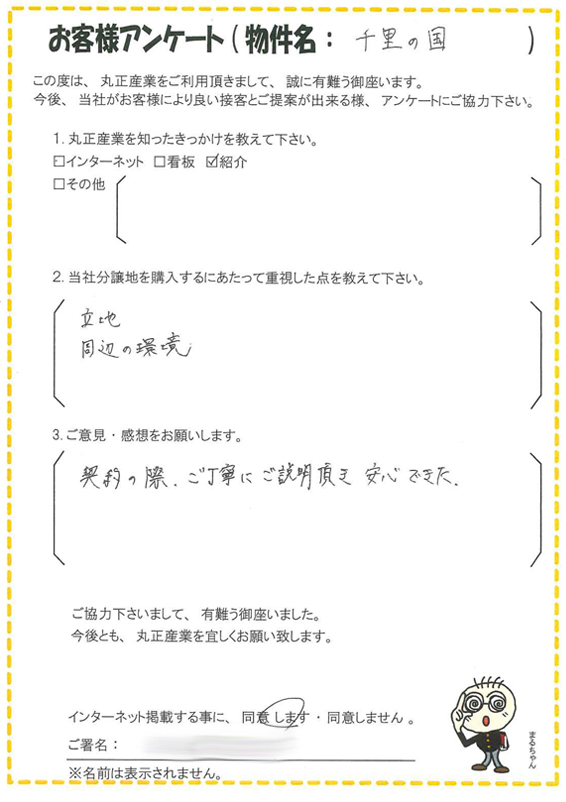 お客様アンケート(物件名： 千里の国 )
この度は、丸正産業をご利用頂きまして、誠に有難う御座います。
今後、当社がお客様により良い接客とご提案が出来る様、アンケートにご協力下さい。
1. 丸正産業を知ったきっかけを教えて下さい。
□インターネット □看板 ☑紹介
□その他
2. 当社分譲地を購入するにあたって重視した点を教えて下さい。
立地
周辺の環境
3. ご意見・感想をお願いします。
契約の際、ご丁寧にご説明頂き 安心できた.
ご協力下さいまして、有難う御座いました。
今後とも、丸正産業を宜しくお願い致します。
インターネット掲載する事に、同意します・同意しません。
ご署名：
※名前は表示されません。
まるちゃん